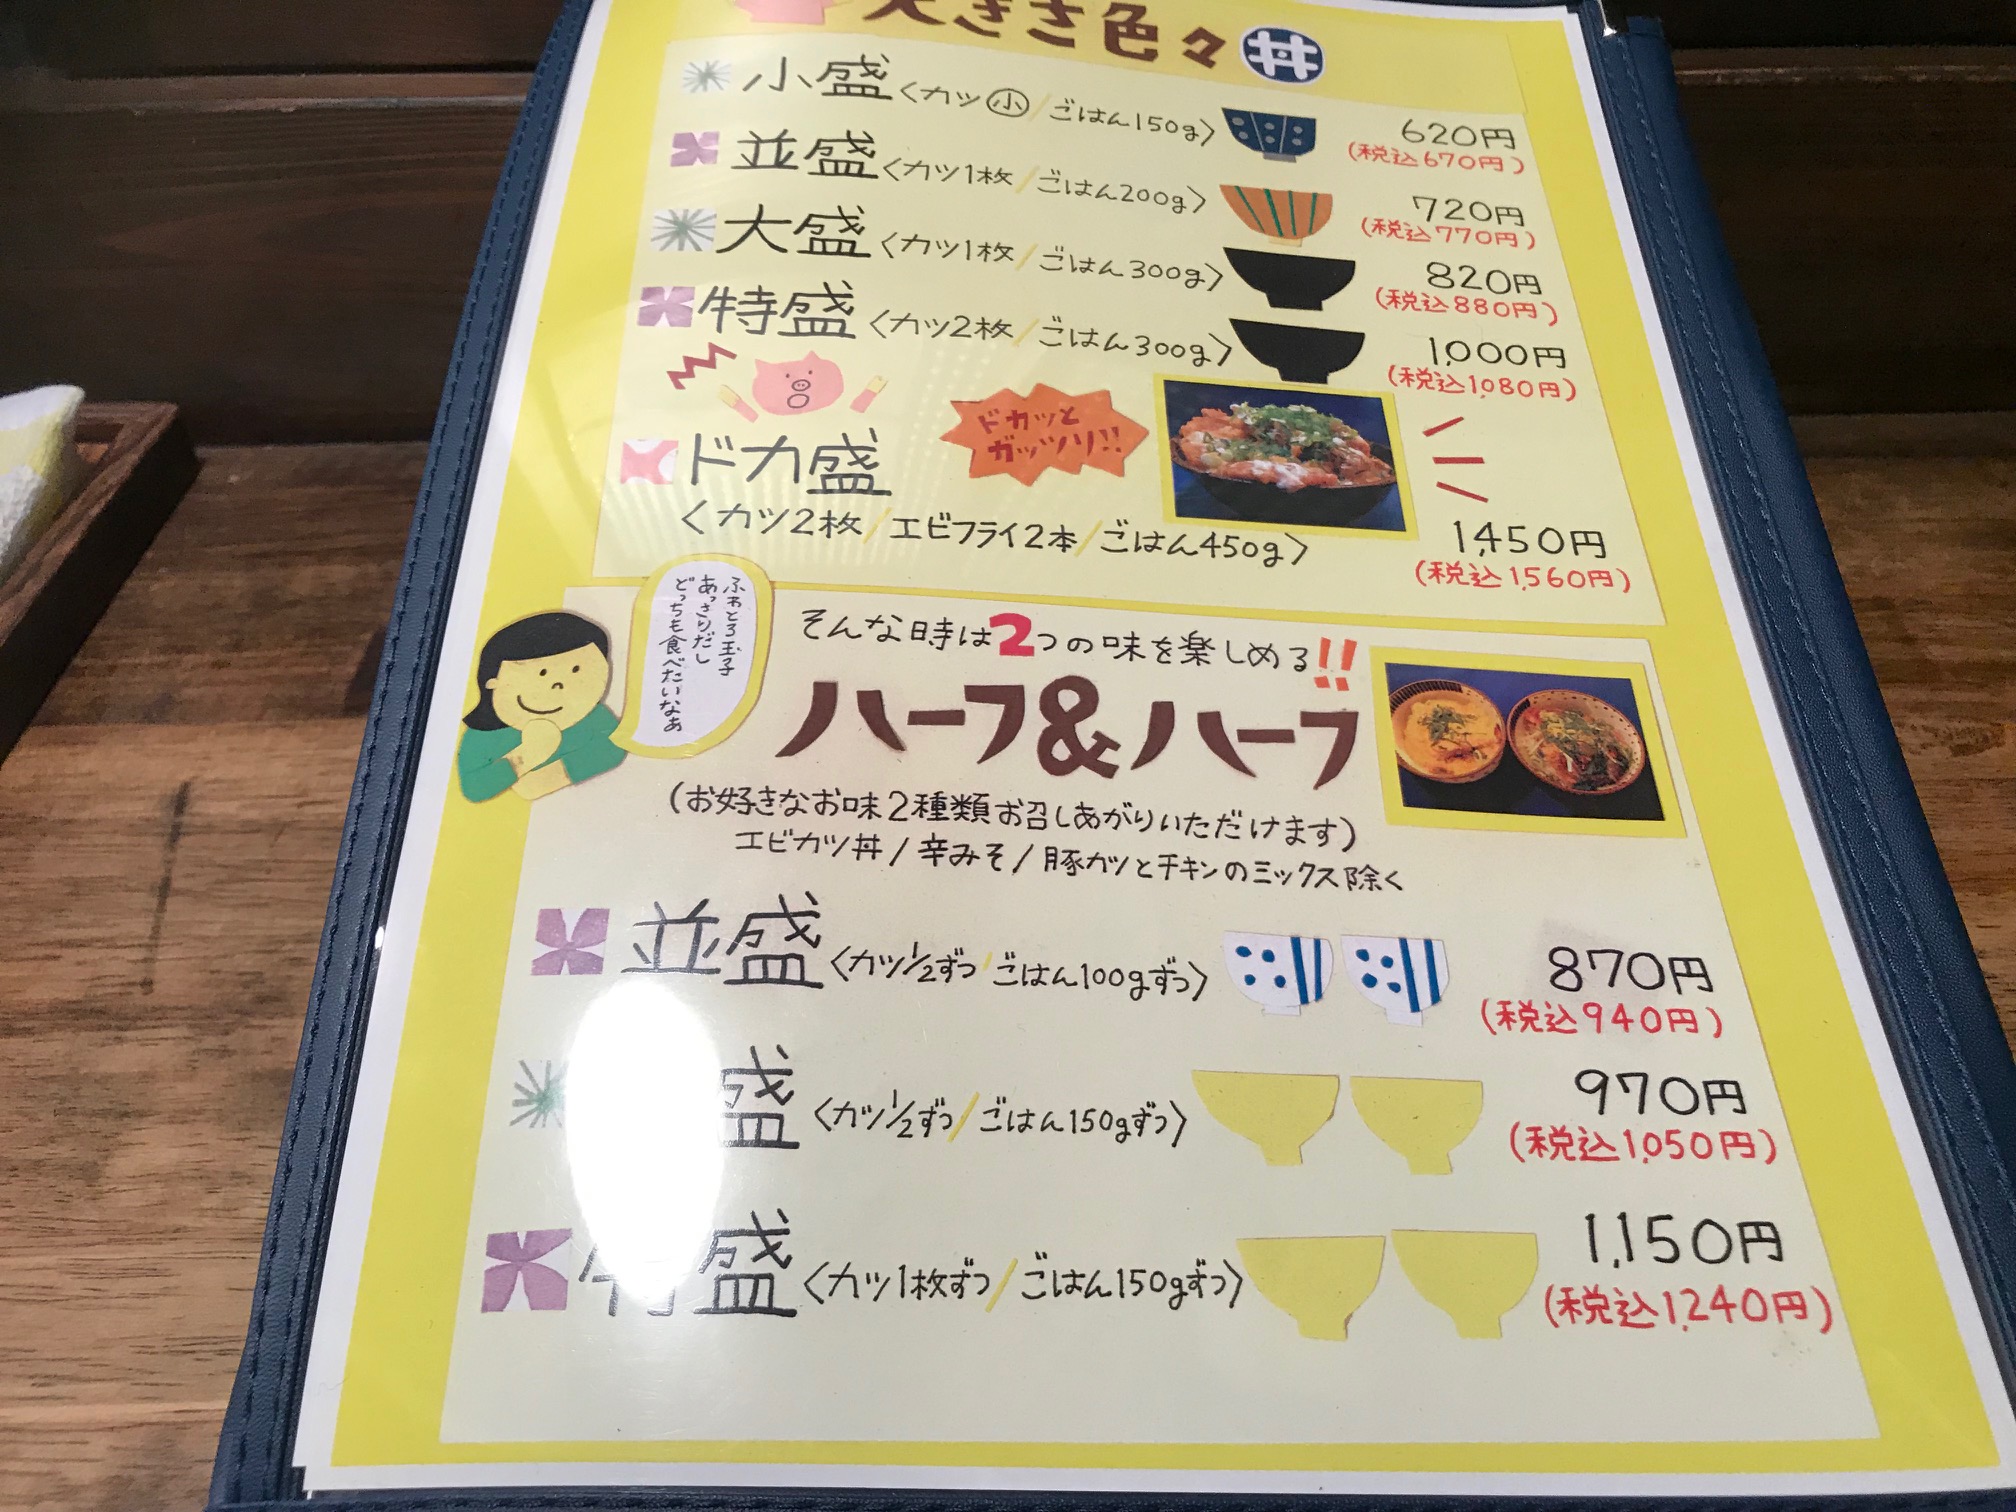 大きさ色々丼
小盛〈カツ小/ごはん150g〉 620円
(税込670円)
並盛〈カツ1枚/ごはん200g〉 720円
(税込770円)
大盛〈カツ1枚/ごはん300g〉 820円
(税込880円)
特盛〈カツ2枚/ごはん300g〉 1,000円
(税込1,080円)
ドカッと
ガッツリ!!
ドカ盛
〈カツ2枚/エビフライ2本/ごはん450g〉 1,450円
(税込1,560円)
ふわとろ玉子
あっさりだし
どっちも食べたいなぁ
そんな時は2つの味を楽しめる!!
ハーフ&ハーフ
(お好きなお味2種類お召しあがりいただけます)
エビカツ丼/辛みそ/豚カツとチキンのミックス除く
並盛〈カツ1/2ずつ/ごはん100gずつ〉 870円
(税込940円)
盛〈カツ1/2ずつ/ごはん150gずつ〉 970円
(税込1,050円)
特盛〈カツ1枚ずつ/ごはん150gずつ〉 1,150円
(税込1,240円)